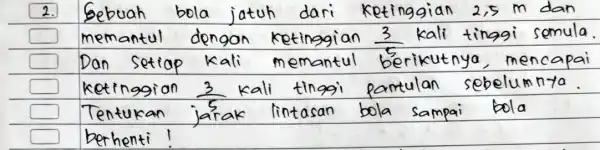 2. Sebuah bola jatuh dari ketinggian 2,5 m dan
memantul dengan ketinggian 3/5 kali tinggi semula.
Dan setiap kali memantul berikutnya, mencapai
ketinggian 3/5 kali tinggi pantulan sebelumnya.
Tentukan jarak lintasan bola sampai bola
berhenti !